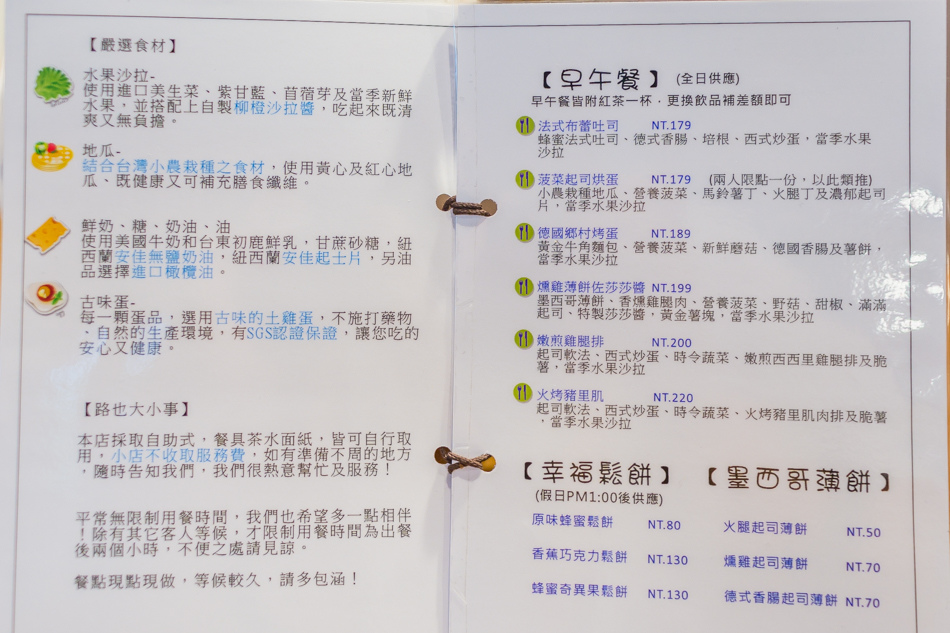 【嚴選食材】
水果沙拉-
使用進口美生菜、紫甘藍、苜蓿芽及當季新鮮
水果，並搭配上自製柳橙沙拉醬，吃起來既清
爽又無負擔。
地瓜-
結合台灣小農栽種之食材，使用黃心及紅心地
瓜、既健康又可補充膳食纖維。
鮮奶、糖、奶油、油
使用美國牛奶和台東初鹿鮮乳，甘蔗砂糖，紐
西蘭安佳無鹽奶油，紐西蘭安佳起士片，另油
品選擇進口橄欖油。
古味蛋-
每一顆蛋品，選用古味的土雞蛋，不施打藥物
、自然的生產環境，有SGS認證保證，讓您吃的
安心又健康。
【路也大小事】
本店採取自助式，餐具茶水面紙，皆可自行取
用，小店不收取服務費，如有準備不周的地方
，隨時告知我們，我們很熱意幫忙及服務！
平常無限制用餐時間，我們也希望多一點相伴
！除有其它客人等候，才限制用餐時間為出餐
後兩個小時，不便之處請見諒。
餐點現點現做，等候較久，請多包涵！
【早午餐】 (全日供應)
早午餐皆附紅茶一杯．更換飲品補差額即可
法式布蕾吐司 NT.179
蜂蜜法式吐司、德式香腸、培根、西式炒蛋，當季水果
沙拉
菠菜起司烘蛋 NT.179 (兩人限點一份，以此類推)
小農栽種地瓜、營養菠菜、馬鈴薯丁、火腿丁及濃郁起司
片，當季水果沙拉
德國鄉村烤蛋 NT.189
黃金牛角麵包、營養菠菜、新鮮蘑菇、德國香腸及薯餅，
當季水果沙拉
燻雞薄餅佐莎莎醬 NT.199
墨西哥薄餅、香燻雞腿肉、營養菠菜、野菇、甜椒、滿滿
起司、特製莎莎醬，黃金薯塊，當季水果沙拉
嫩煎雞腿排 NT.200
起司軟法、西式炒蛋、時令蔬菜、嫩煎西西里雞腿排及脆
薯，當季水果沙拉
火烤豬里肌 NT.220
起司軟法、西式炒蛋、時令蔬菜、火烤豬里肌肉排及脆薯
，當季水果沙拉
【幸福鬆餅】
(假日PM1:00後供應)
原味蜂蜜鬆餅 NT.80
香蕉巧克力鬆餅 NT.130
蜂蜜奇異果鬆餅 NT.130
【墨西哥薄餅】
火腿起司薄餅 NT.50
燻雞起司薄餅 NT.70
德式香腸起司薄餅 NT.70